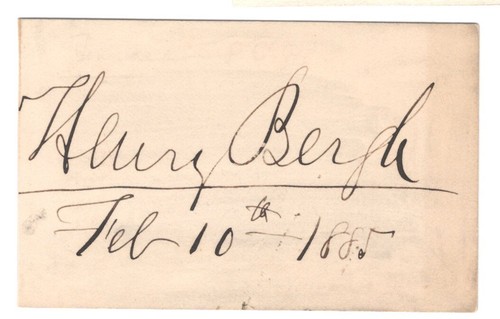 Henry Bergh
Feb 10th 1885